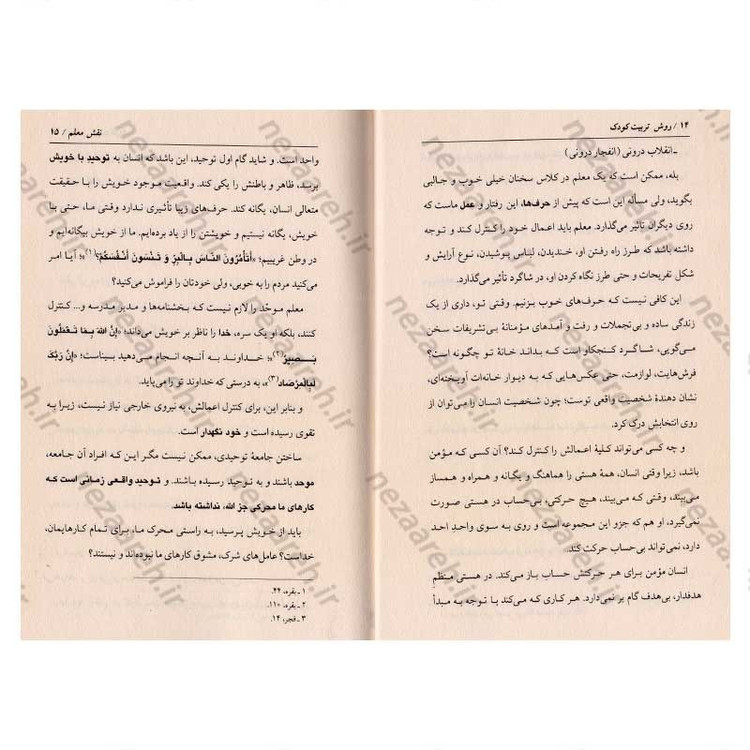 ۱۴ / روش تربیت کودک
ـ انقلاب درونی (انفجار درونی)
بله، ممکن است که یک معلم در کلاس سخنان خیلی خوب و جالبی
بگوید، ولی مسأله این است که پیش از حرف‌ها، این رفتار و عمل ماست که
روی دیگران تأثیر می‌گذارد. معلم باید اعمال خود را کنترل کند و توجه
داشته باشد که طرز راه رفتن او، خندیدن، لباس پوشیدن، نوع آرایش و
شکل تفریحات و حتی طرز نگاه کردن او، در شاگرد تأثیر می‌گذارد.
این کافی نیست که حرف‌های خوب بزنیم. وقتی تو، داری از یک
زندگی ساده و بی‌تجملات و رفت و آمدهای مؤمنانهٔ بی‌تشریفات سخن
می‌گویی، شاگرد کنجکاو است که بداند خانهٔ تو چگونه است؟
فرش‌هایت، لوازمت، حتی عکس‌هایی که به دیوار خانه‌ات آویخته‌ای،
نشان دهندهٔ شخصیت واقعی توست؛ چون شخصیت انسان را می‌توان از
روی انتخابش درک کرد.
و چه کسی می‌تواند کلیهٔ اعمالش را کنترل کند؟ آن کسی که مؤمن
باشد، زیرا وقتی انسان، همهٔ هستی را هماهنگ و یگانه و همراه و همساز
می‌بیند، وقتی که می‌بیند، هیچ حرکتی، بی‌حساب در هستی صورت
نمی‌گیرد، او هم که جزو این مجموعه است و روی به سوی واحدِ احد
دارد، نمی‌تواند بی‌حساب حرکت کند.
انسان مؤمن برای هر حرکتش حساب باز می‌کند. در هستی منظم
هدفدار، بی‌هدف گام بر نمی‌دارد. هر کاری که می‌کند با توجه به مبدأ
نقش معلم / ۱۵
واحد است. و شاید گام اول توحید، این باشد که انسان به توحیدِ با خویش
برسد، ظاهر و باطنش را یکی کند. واقعیت موجود خویش را با حقیقت
متعالی انسان، یگانه کند. حرف‌های زیبا تأثیری ندارد وقتی ما، حتی با
خویش، یگانه نیستیم و خویشتن را از یاد برده‌ایم. ما از خویش بیگانه‌ایم و
در وطن غریبیم؛ «أتَأْمُرُونَ النَّاسَ بِالْبِرِّ وَ تَنْسَوْنَ أَنْفُسَکُمْ»(۱)؛ آیا امر
می‌کنید مردم را به خوبی، ولی خودتان را فراموش می‌کنید؟
معلم موحّد را لازم نیست که بخشنامه‌ها و مدیر مدرسه و... کنترل
کنند، بلکه او یک سره، خدا را ناظر بر خویش می‌داند؛ «إنَّ اللهَ بِمَا تَعْمَلُونَ
بَصِیرٌ»(۲)؛ خداوند به آنچه انجام می‌دهید بیناست؛ «إنَّ رَبَّکَ
لَبِالْمِرْصَادِ»(۳)؛ به درستی که خداوند تو را می‌پاید.
و بنابر این، برای کنترل اعمالش، به نیروی خارجی نیاز نیست، زیرا به
تقوی رسیده است و خود نگهدار است.
ساختن جامعهٔ توحیدی، ممکن نیست مگر این که افراد آن جامعه،
موحد باشند و به توحید رسیده باشند. و توحید واقعی زمانی است که
کارهای ما محرکی جز الله، نداشته باشد.
باید از خویش پرسید، به راستی محرک ما، برای تمام کارهایمان،
خداست؟ عامل‌های شرک، مشوق کارهای ما نبوده‌اند و نیستند؟
۱ ـ بقره، ۴۴.
۲ ـ بقره، ۱۱۰.
۳ ـ فجر، ۱۴.
nezaareh.ir